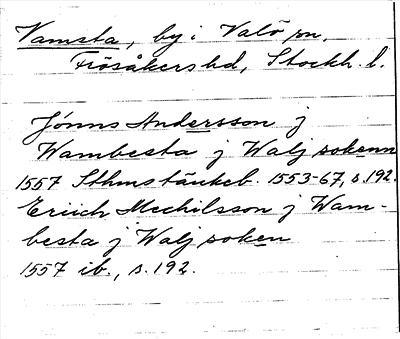 Vamsta, by i Valö sn,
Frösåkers hd, Stockh. l.
Jönns Andersson j
Wambesta j Walj sokenn
1557 Sthms tänkeb. 1553-67, s. 192.
Eriich Mechilsson j Wam-
besta j Walj soken
1557 ib., s. 192.